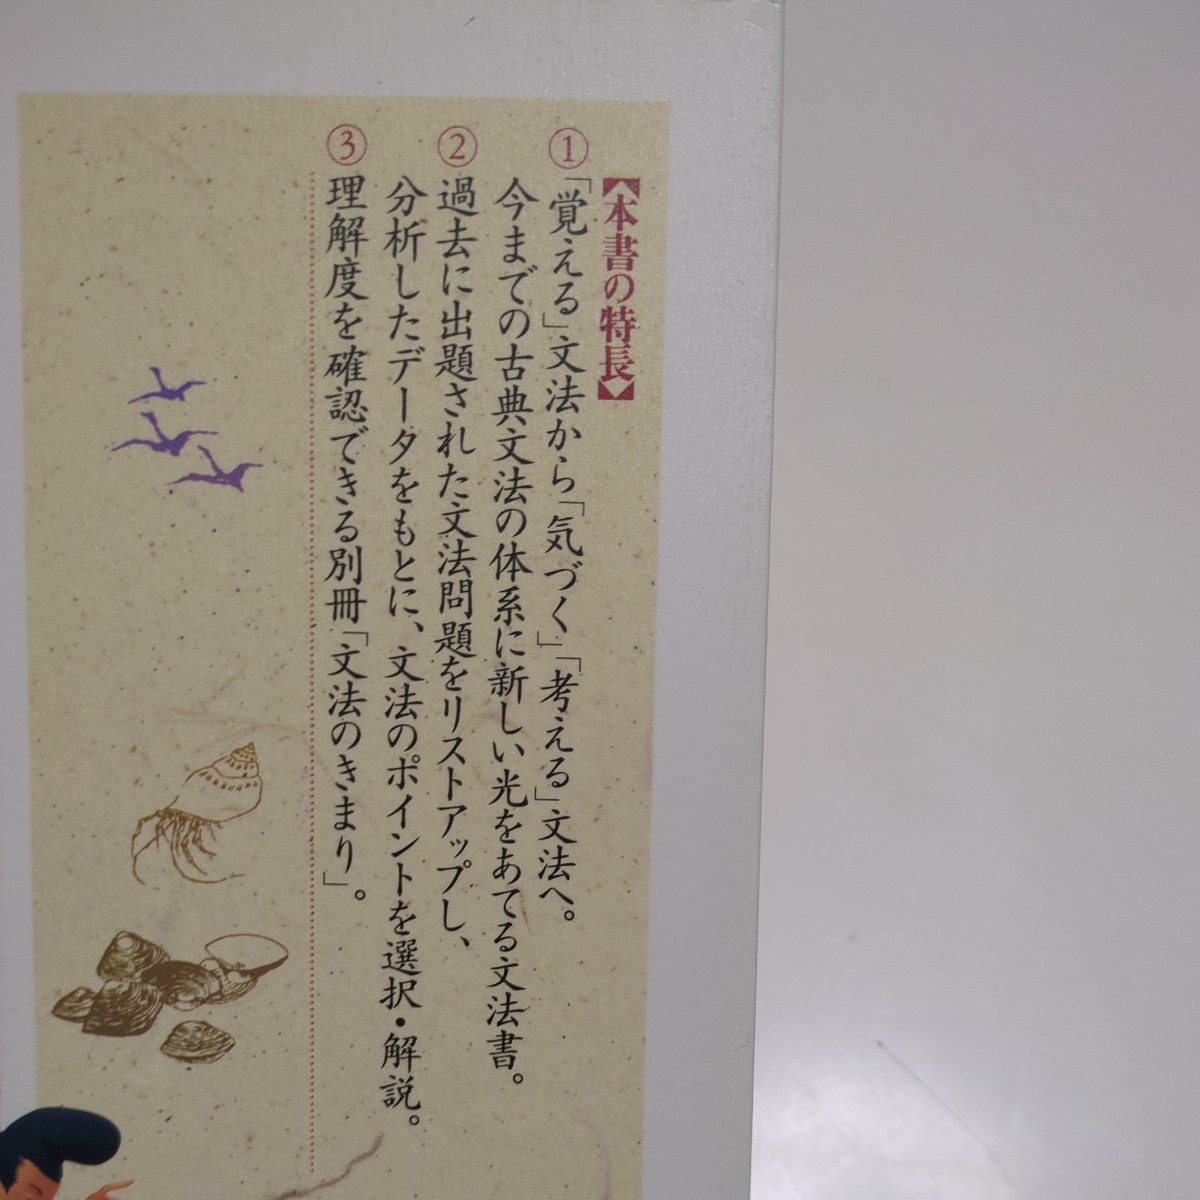 【本書の特長】
①「覚える」文法から「気づく」「考える」文法へ。
今までの古典文法の体系に新しい光をあてる文法書。
②過去に出題された文法問題をリストアップし、
分析したデータをもとに、文法のポイントを選択・解説。
③理解度を確認できる別冊「文法のきまり」。